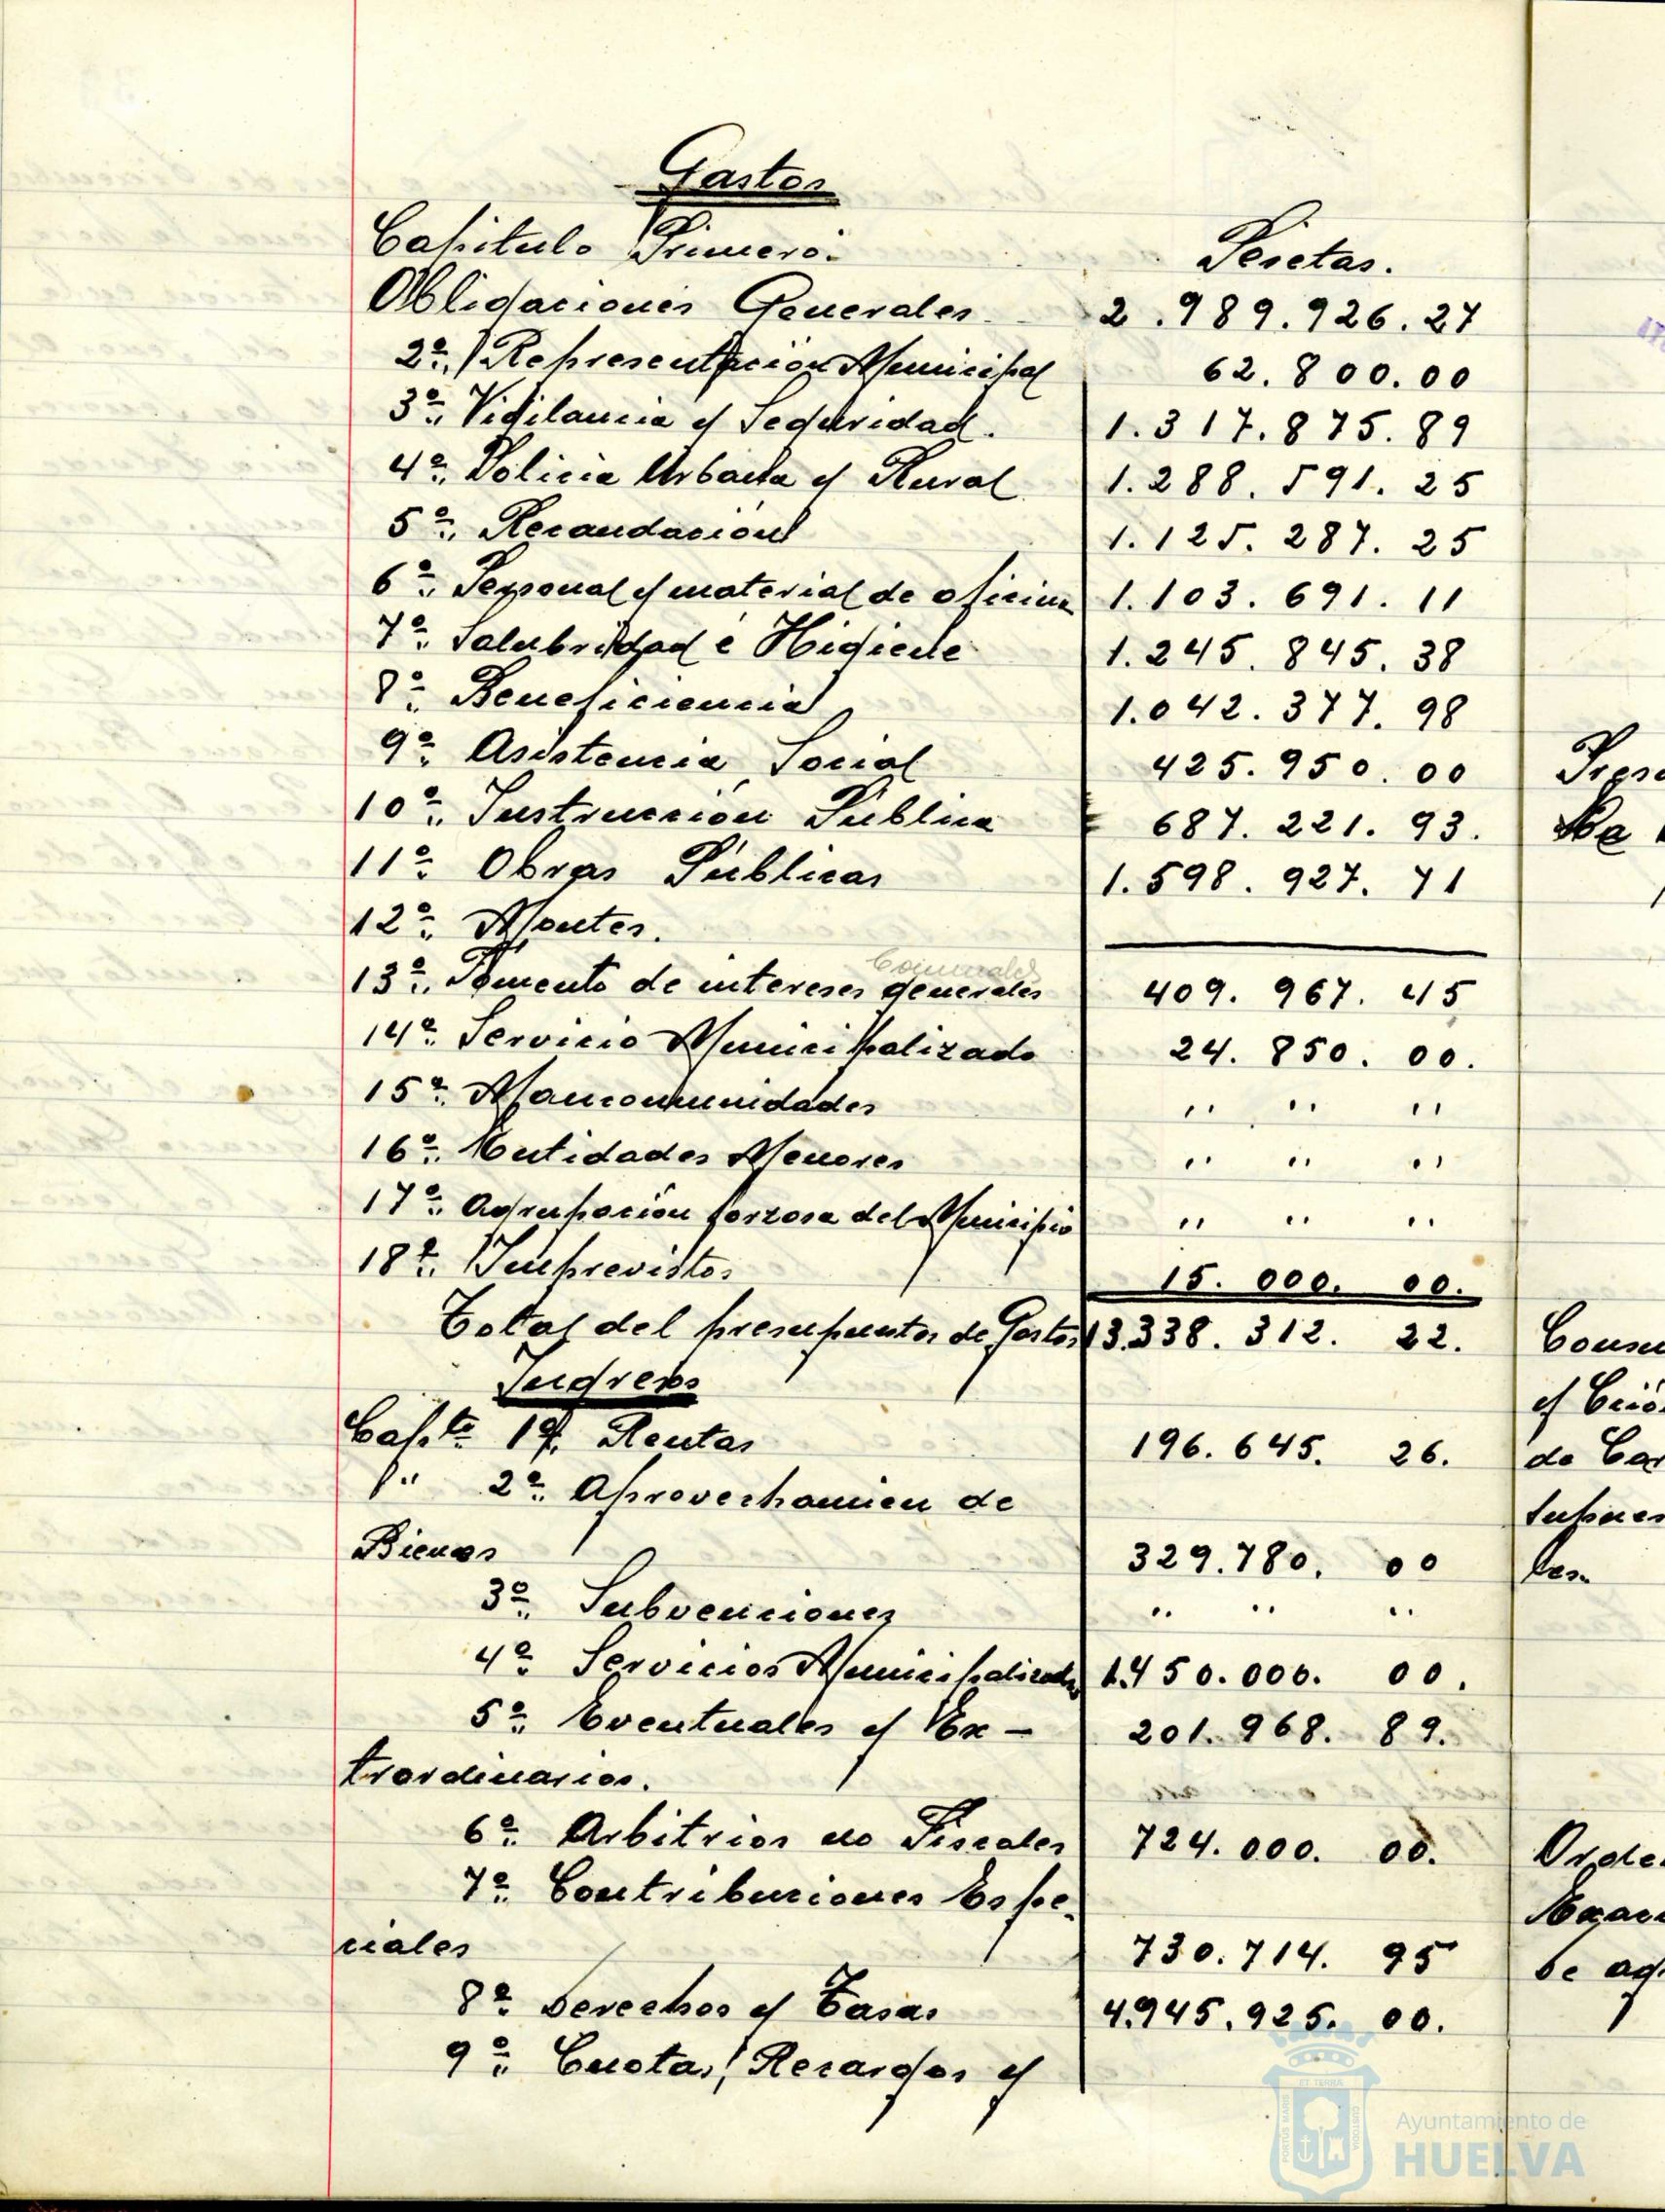 Gastos
Capitulo Primero. Pesetas.
Obligaciones Generales 2.989.926.27
2º. Representación Municipal 62.800.00
3º. Vigilancia y Seguridad. 1.317.875.89
4º. Policia Urbana y Rural 1.288.591.25
5º. Recaudación 1.125.287.25
6º. Personal y material de oficina 1.103.691.11
7º. Salubridad é Higiene 1.245.845.38
8º. Beneficiencia 1.042.377.98
9º. Asistencia Social 425.950.00
10º. Instrucción Pública 687.221.93.
11º. Obras Públicas 1.598.927.71
12º. Montes.
Comunales
13º. Fomento de intereses generales 409.967.45
14º. Servicio Municipalizado 24.850.00.
15º. Mancomunidades " " "
16º. Entidades Menores " " "
17º. Agrupación forzosa del Municipio " " "
18º. Imprevistos 15.000.00.
Total del presupuestos de Gastos 13.338.312.22.
Ingresos
Capto. 1º. Rentas 196.645.26.
" 2º. Aprovechamien de
Bienes 329.780.00
3º. Subvenciones " " "
4º. Servicios Municipalizados 1.450.000.00.
5º. Eventuales y Ex- 201.968.89.
traordinarios.
6º. Arbitrios no Fiscales 724.000.00.
7º. Contribuciones Espe-
ciales 730.714.95
8º. Derechos y Tasas 4.945.925.00.
9º. Cuotas, Recargos y
Ayuntamiento de
HUELVA